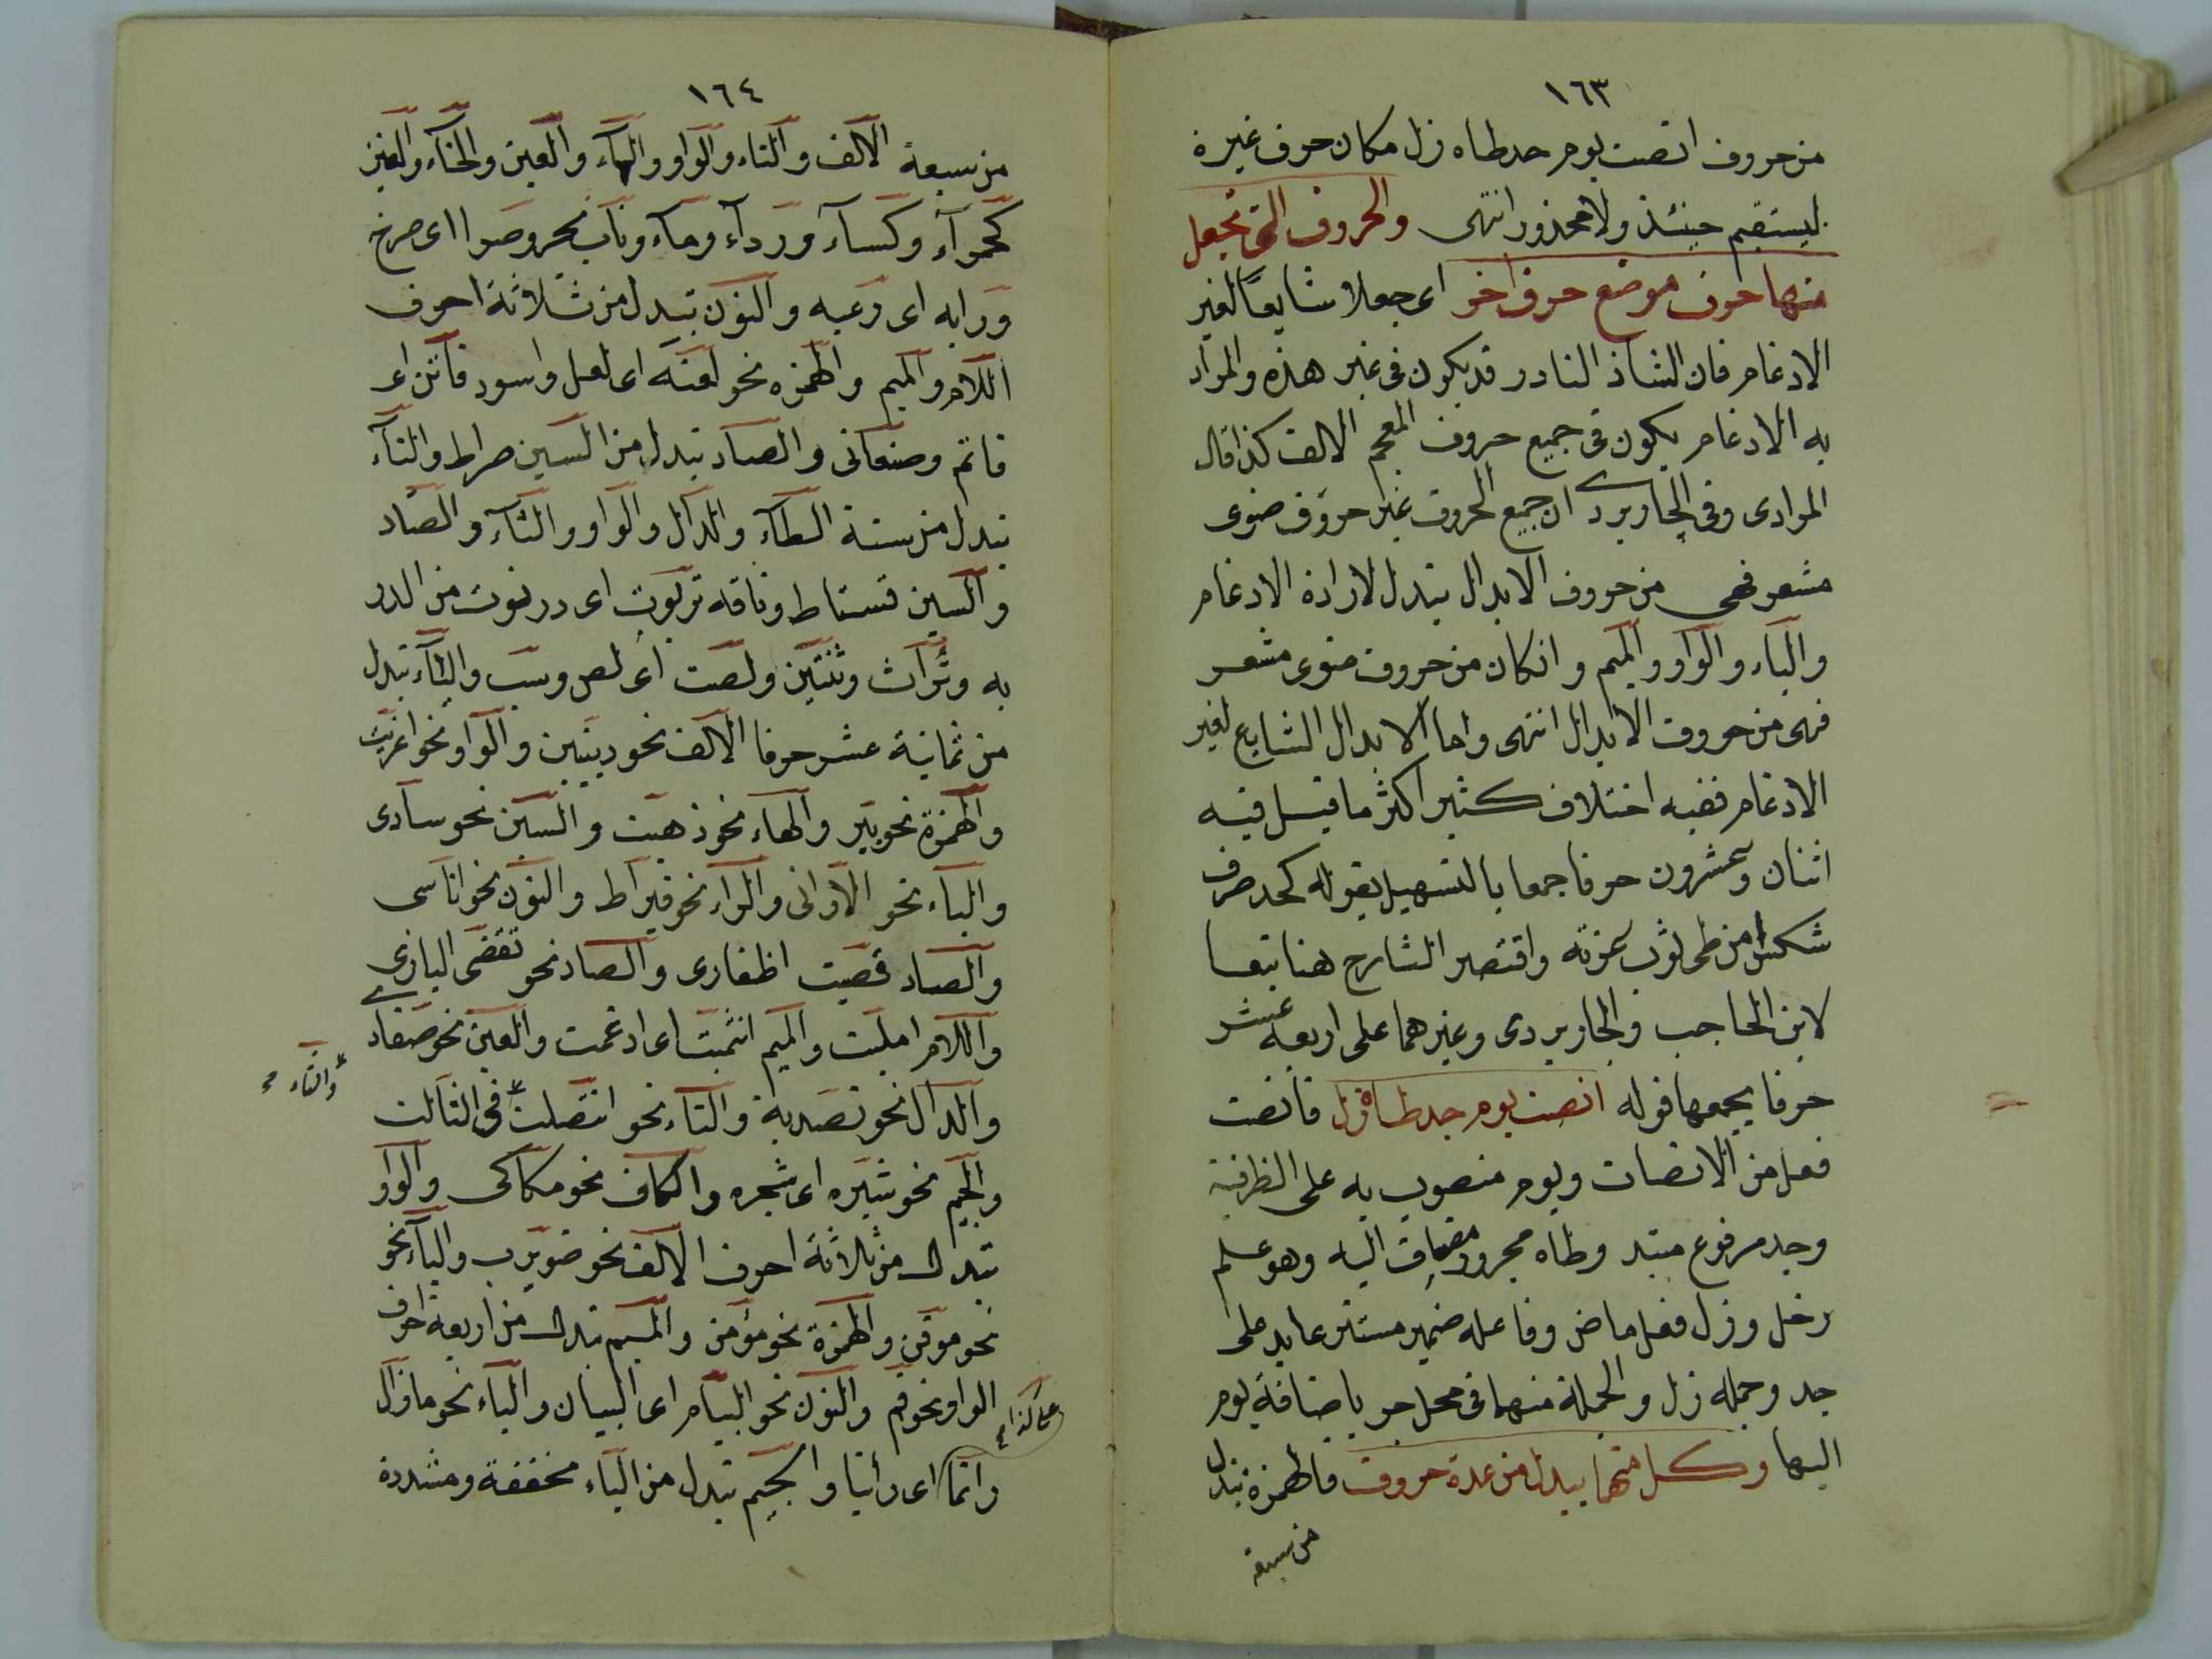 ١٦٣
من حروف انصت يوم جد طاه زل مكان حرف غيره
ليستقيم حينئذ ولا محذور انتهى والحروف التى تجعل
منها حرف موضع حرف اخر اى جعلا شايعا لغير
الادغام فان الشاذ النادر قد يكون فى غير هذه والمراد
به الادغام يكون فى جميع حروف المعجم الا الالف كذا قال
المرادى وفى الجاربردى ان جميع الحروف غير حروف ضوى
مشفر فهى من حروف الابدال تبدل لارادة الادغام
والياء والواو والميم وانكان من حروف ضوى مشفر
فهى من حروف الابدال انتهى واما الابدال الشايع لغير
الادغام ففيه اختلاف كثير اكثر ما قيل فيه
اثنان وعشرون حرفا جمعها بالتسهيل بقوله لجد صرف
شكس امن طى ثوب عزته واقتصر الشارح هنا تبعا
لابن الحاجب والجاربردى وغيرهما على اربعة عشر
حرفا يجمعها قوله انصت يوم جد طاه زل فانصت
فعل من الانصات ويوم منصوب به على الظرفية
وجد مرفوع مبتدا وطاه مجرور مضاف اليه وهو علم
رجل وزل فعل ماض وفاعله ضمير مستتر عايد على
جد وجملة زل والجملة منهما فى محل جر باضافة يوم
اليها وكل منها يبدل من عدة حروف فالهمزة تبدل
من سبعة
١٦٤
من سبعة الالف والتاء والواو والياء والعين والخاء والغين
كحمرآء وكسآء وردآء ومآء ونأب بحر وصرا اى صرخ
ورابه اى رغبه والنون تبدل من ثلاثة احرف
اللام والميم والهمزه نحو لعنه اى لعل واسود فاتن اى
فاتم وصنعانى والصاد تبدل من السين صراط والتآء
تبدل من ستة الطآء والدال والواو والثآء والصاد
والسين فستاط وناقه تربوت اى دربوت من الدر
به وتراث وثنتين ولصت اى لص وست واليآء تبدل
من ثمانية عشر حرفا الالف نحو دينين والواو نحو اغزيت
والهمزة نحو بير والهاء نحو ذهيت والسين نحو سادى
والباء نحو الارانى والراء نحو قيراط والنون نحو اناسى
والصاد قصيت اظفارى والضاد نحو تقضى البازى
واللام امليت والميم ائتميت اى ادغمت والعين نحو ضفاد
والدال نحو تصدية والتاء نحو ايتصلت فى الثالث
والثاء
والجيم نحو شيره اى شجره والكاف نحو مكاكى والواو
تبدل من ثلاثة احرف الالف نحو ضويرب واليآء نحو
نحو موقن والهمزة نحو مؤمن والميم تبدل من اربعة احرف
الواو نحو فم والنون نحو البنام اى البنان والباء نحو ما زال
راتما اى راتبا والجيم تبدل من الياء مخففة ومشددة